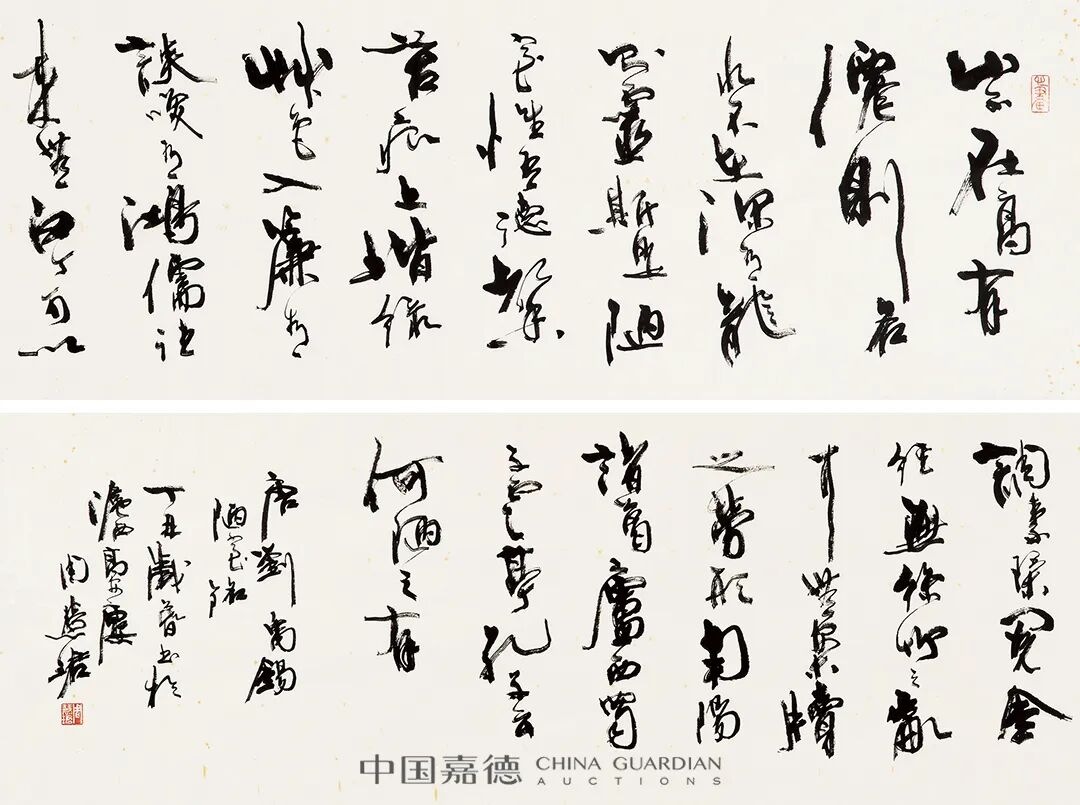 山不在高有
僊則名
水不在深有龍
則靈斯是陋
室惟吾德馨
苔痕上堦緑
艸色入簾青
談笑有鴻儒往
來無白丁可以
調素琴閱金
經無絲竹之亂
耳無案牘
之勞形南陽
諸葛廬西蜀
子雲亭孔子云
何陋之有
唐劉禹錫
陋室銘
丁丑歲暮書於
滬西高安廔
周慧珺
中国嘉德 CHINA GUARDIAN
AUCTIONS